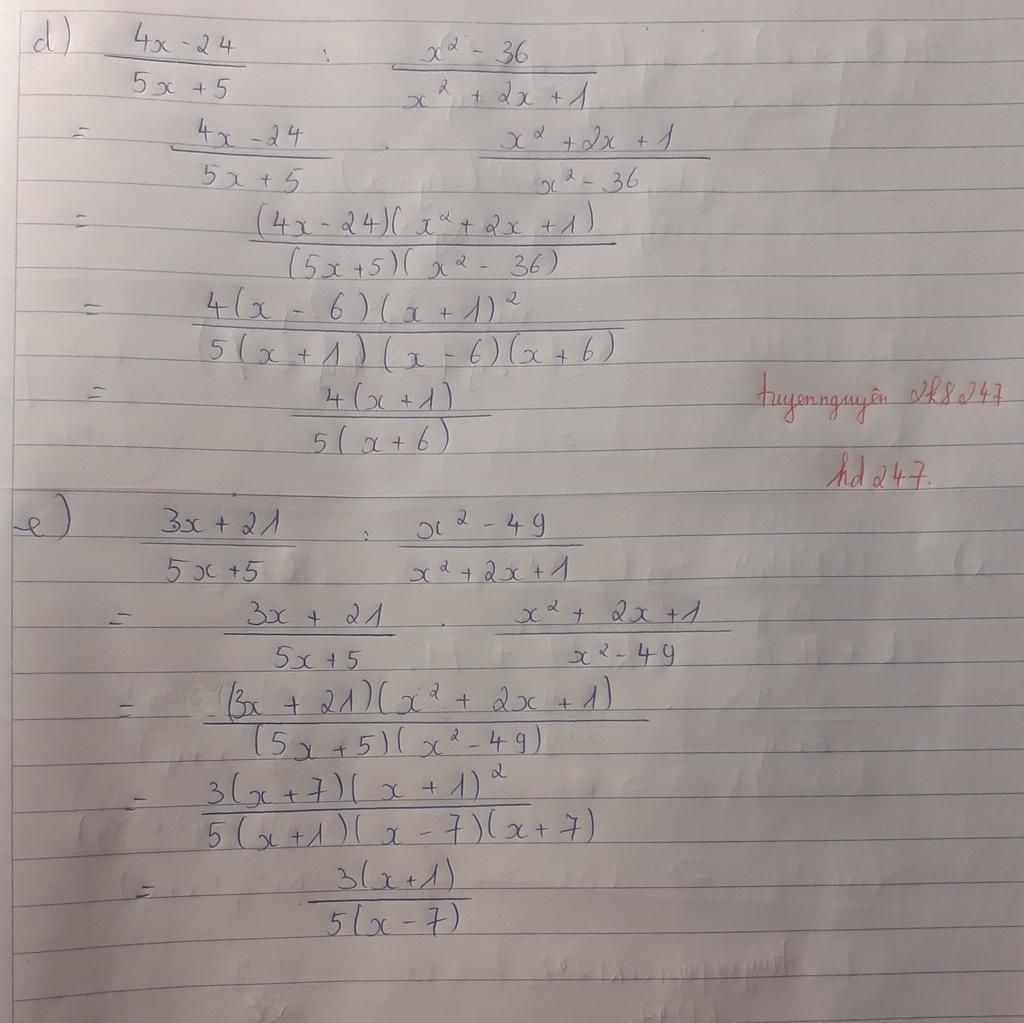 d) 4x - 24 / 5x + 5 : x² - 36 / x² + 2x + 1
= 4x - 24 / 5x + 5 . x² + 2x + 1 / x² - 36
= (4x - 24)(x² + 2x + 1) / (5x + 5)(x² - 36)
= 4(x - 6)(x + 1)² / 5(x + 1)(x - 6)(x + 6)
= 4(x + 1) / 5(x + 6)
tuyennguyên 2k8247
hd247.
e) 3x + 21 / 5x + 5 : x² - 49 / x² + 2x + 1
= 3x + 21 / 5x + 5 . x² + 2x + 1 / x² - 49
= (3x + 21)(x² + 2x + 1) / (5x + 5)(x² - 49)
= 3(x + 7)(x + 1)² / 5(x + 1)(x - 7)(x + 7)
= 3(x + 1) / 5(x - 7)